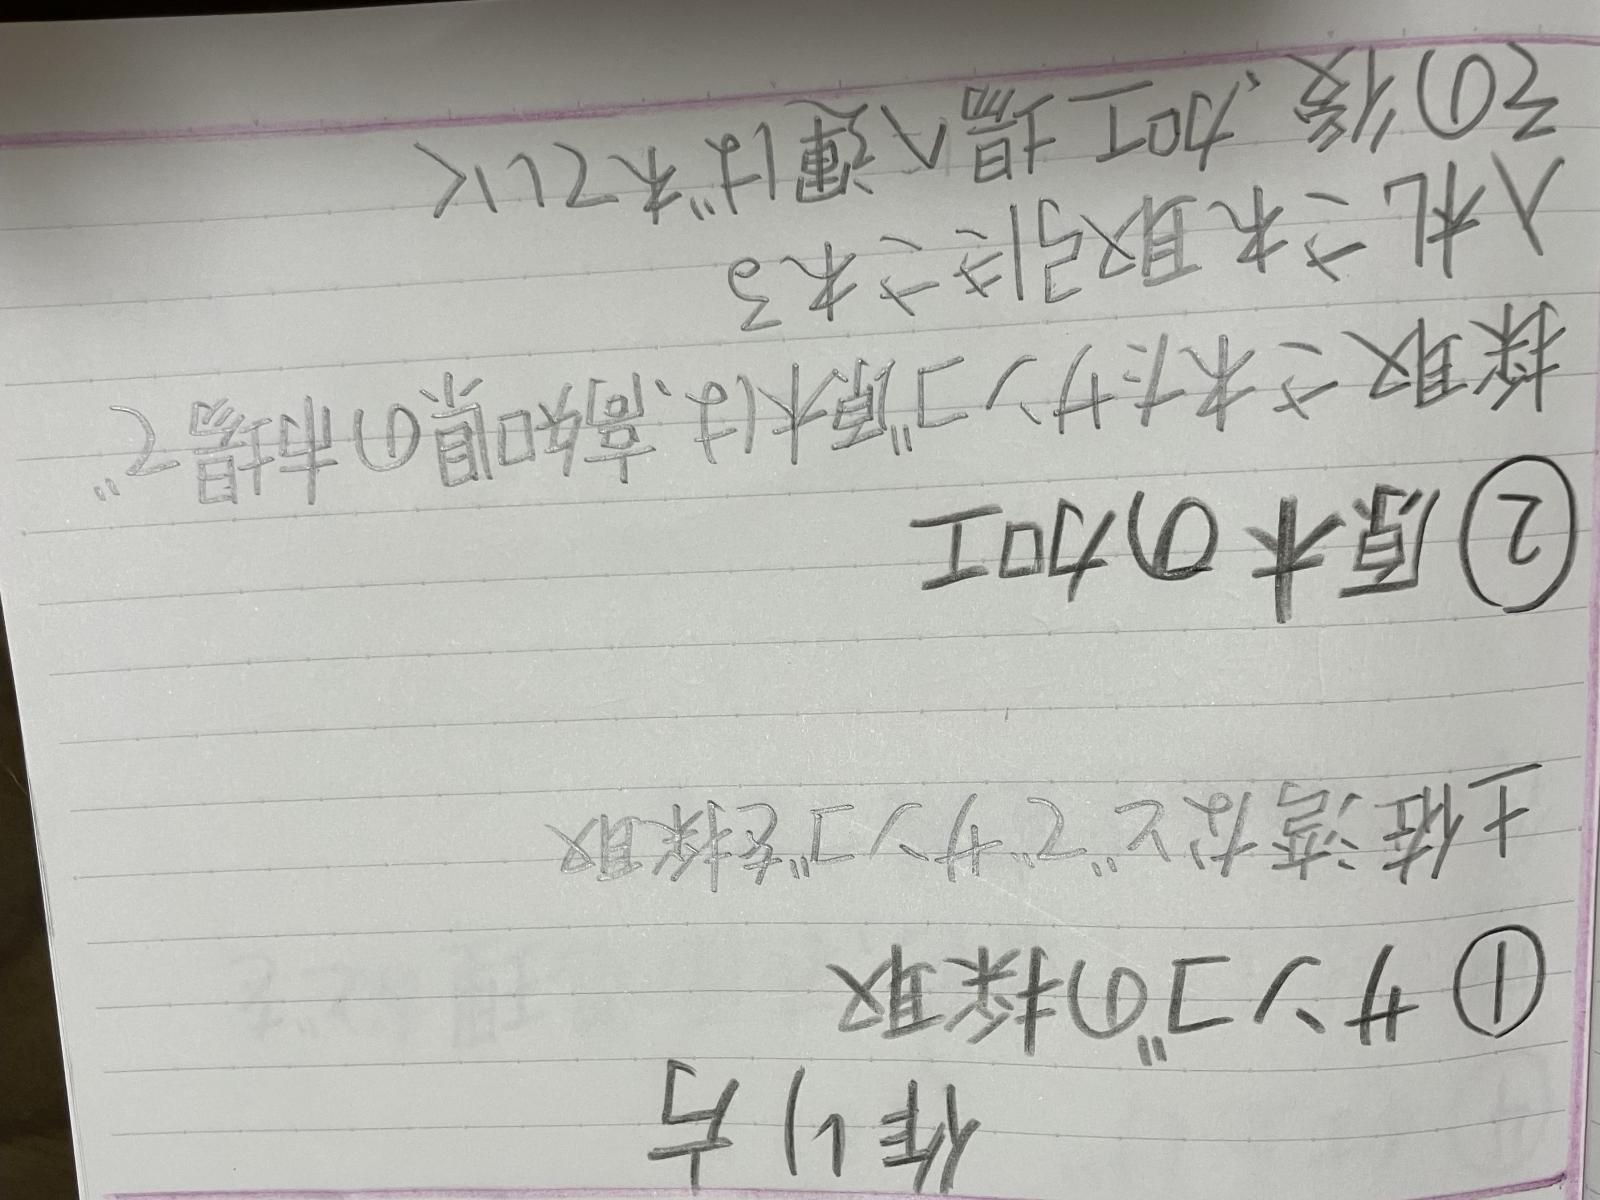 作り方
①サンゴの採取
土佐湾などでサンゴを採取
②原木の加工
採取されたサンゴ原木は、高知県の市場で
入札され取引きされる
その後、加工場へ運ばれていく